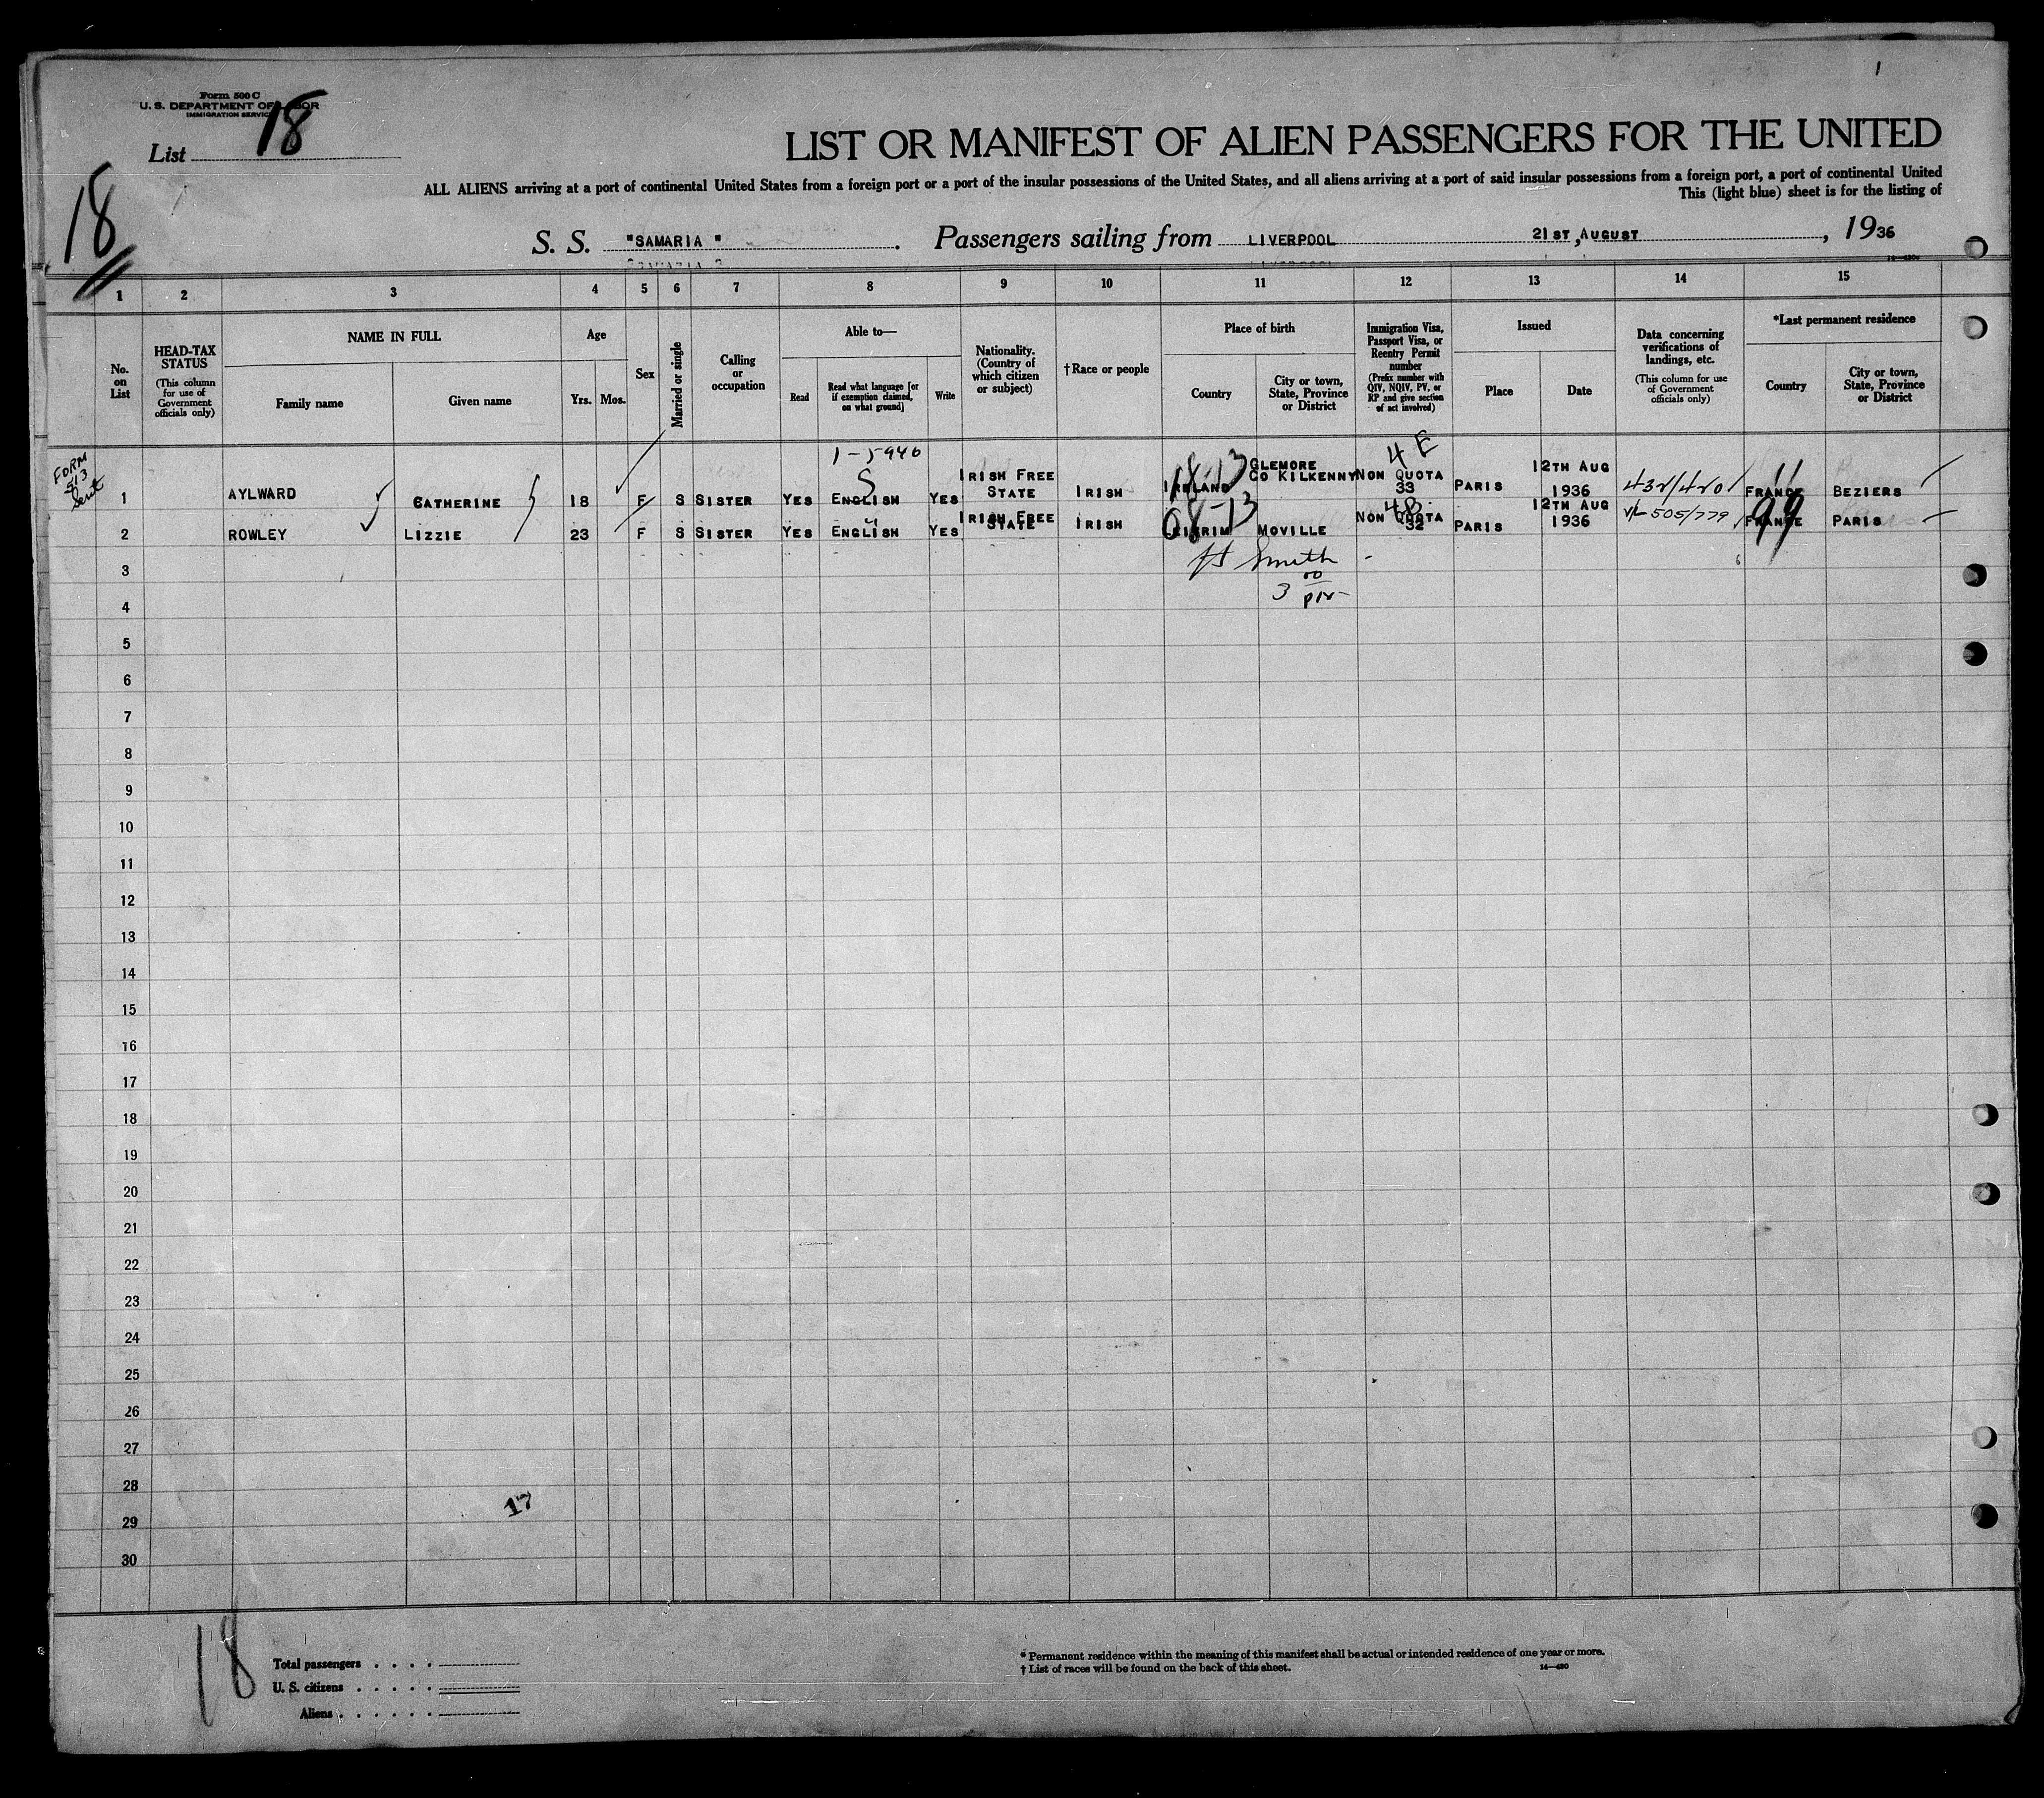 1
Form 500 C
U. S. DEPARTMENT OF LABOR
IMMIGRATION SERVICE
List 18
18
LIST OR MANIFEST OF ALIEN PASSENGERS FOR THE UNITED
ALL ALIENS arriving at a port of continental United States from a foreign port or a port of the insular possessions of the United States, and all aliens arriving at a port of said insular possessions from a foreign port, a port of continental United
This (light blue) sheet is for the listing of
S. S. "SAMARIA". Passengers sailing from LIVERPOOL 21ST, AUGUST, 1936
1 2 3 4 5 6 7 8 9 10 11 12 13 14 15
No. on List
HEAD-TAX STATUS
(This column for use of Government officials only)
NAME IN FULL
Family name
Given name
Age
Yrs.
Mos.
Sex
Married or single
Calling or occupation
Able to—
Read
Read what language [or if exemption claimed, on what ground]
Write
Nationality. (Country of which citizen or subject)
†Race or people
Place of birth
Country
City or town, State, Province or District
Immigration Visa, Passport Visa, or Reentry Permit number
(Prefix number with QIV, NQIV, PV, or RP and give section of act involved)
Issued
Place
Date
Data concerning verifications of landings, etc.
(This column for use of Government officials only)
*Last permanent residence
Country
City or town, State, Province or District
FORM 513 Sent
1-5946
4 E
1 AYLWARD CATHERINE 18 F S SISTER YES ENGLISH YES IRISH FREE STATE IRISH IRELAND GLEMORE CO KILKENNY NON QUOTA 33 PARIS 12TH AUG 1936 432/420 FRANCE BEZIERS
2 ROWLEY LIZZIE 23 F S SISTER YES ENGLISH YES IRISH FREE STATE IRISH LEIKRIM MOVILLE NON QUOTA 32 PARIS 12TH AUG 1936 505/779 FRANCE PARIS
99
Smith
3
4
5
6
7
8
9
10
11
12
13
14
15
16
17
18
19
20
21
22
23
24
25
26
27
28
17
29
30
18
Total passengers
U. S. citizens
Aliens
* Permanent residence within the meaning of this manifest shall be actual or intended residence of one year or more.
† List of races will be found on the back of this sheet.
14—430